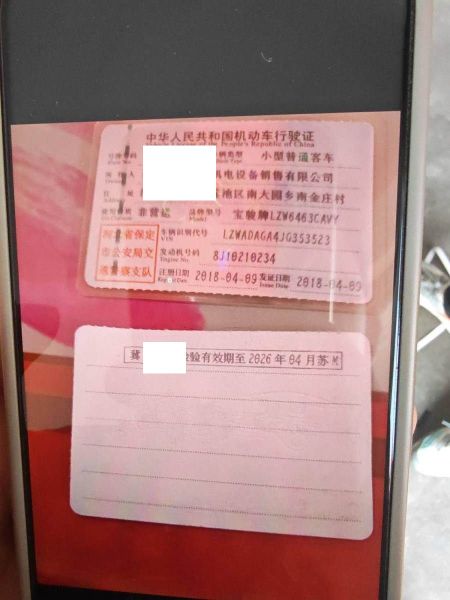 中华人民共和国机动车行驶证
of the People's Republic of China
号牌号码 车辆类型 小型普通客车
所有人 机电设备销售有限公司
住址 池区南大园乡南金庄村
使用性质 非营运 品牌型号 宝骏牌LZW6463CAVY
河北省保定 车辆识别代号 LZWADAGA4JG353523
VIN
市公安局交 发动机号码 8J10210234
Engine No.
通警察支队 注册日期 2018-04-09 发证日期 2018-04-09
Register Date Issue Date
冀 检验有效期至2026年04月